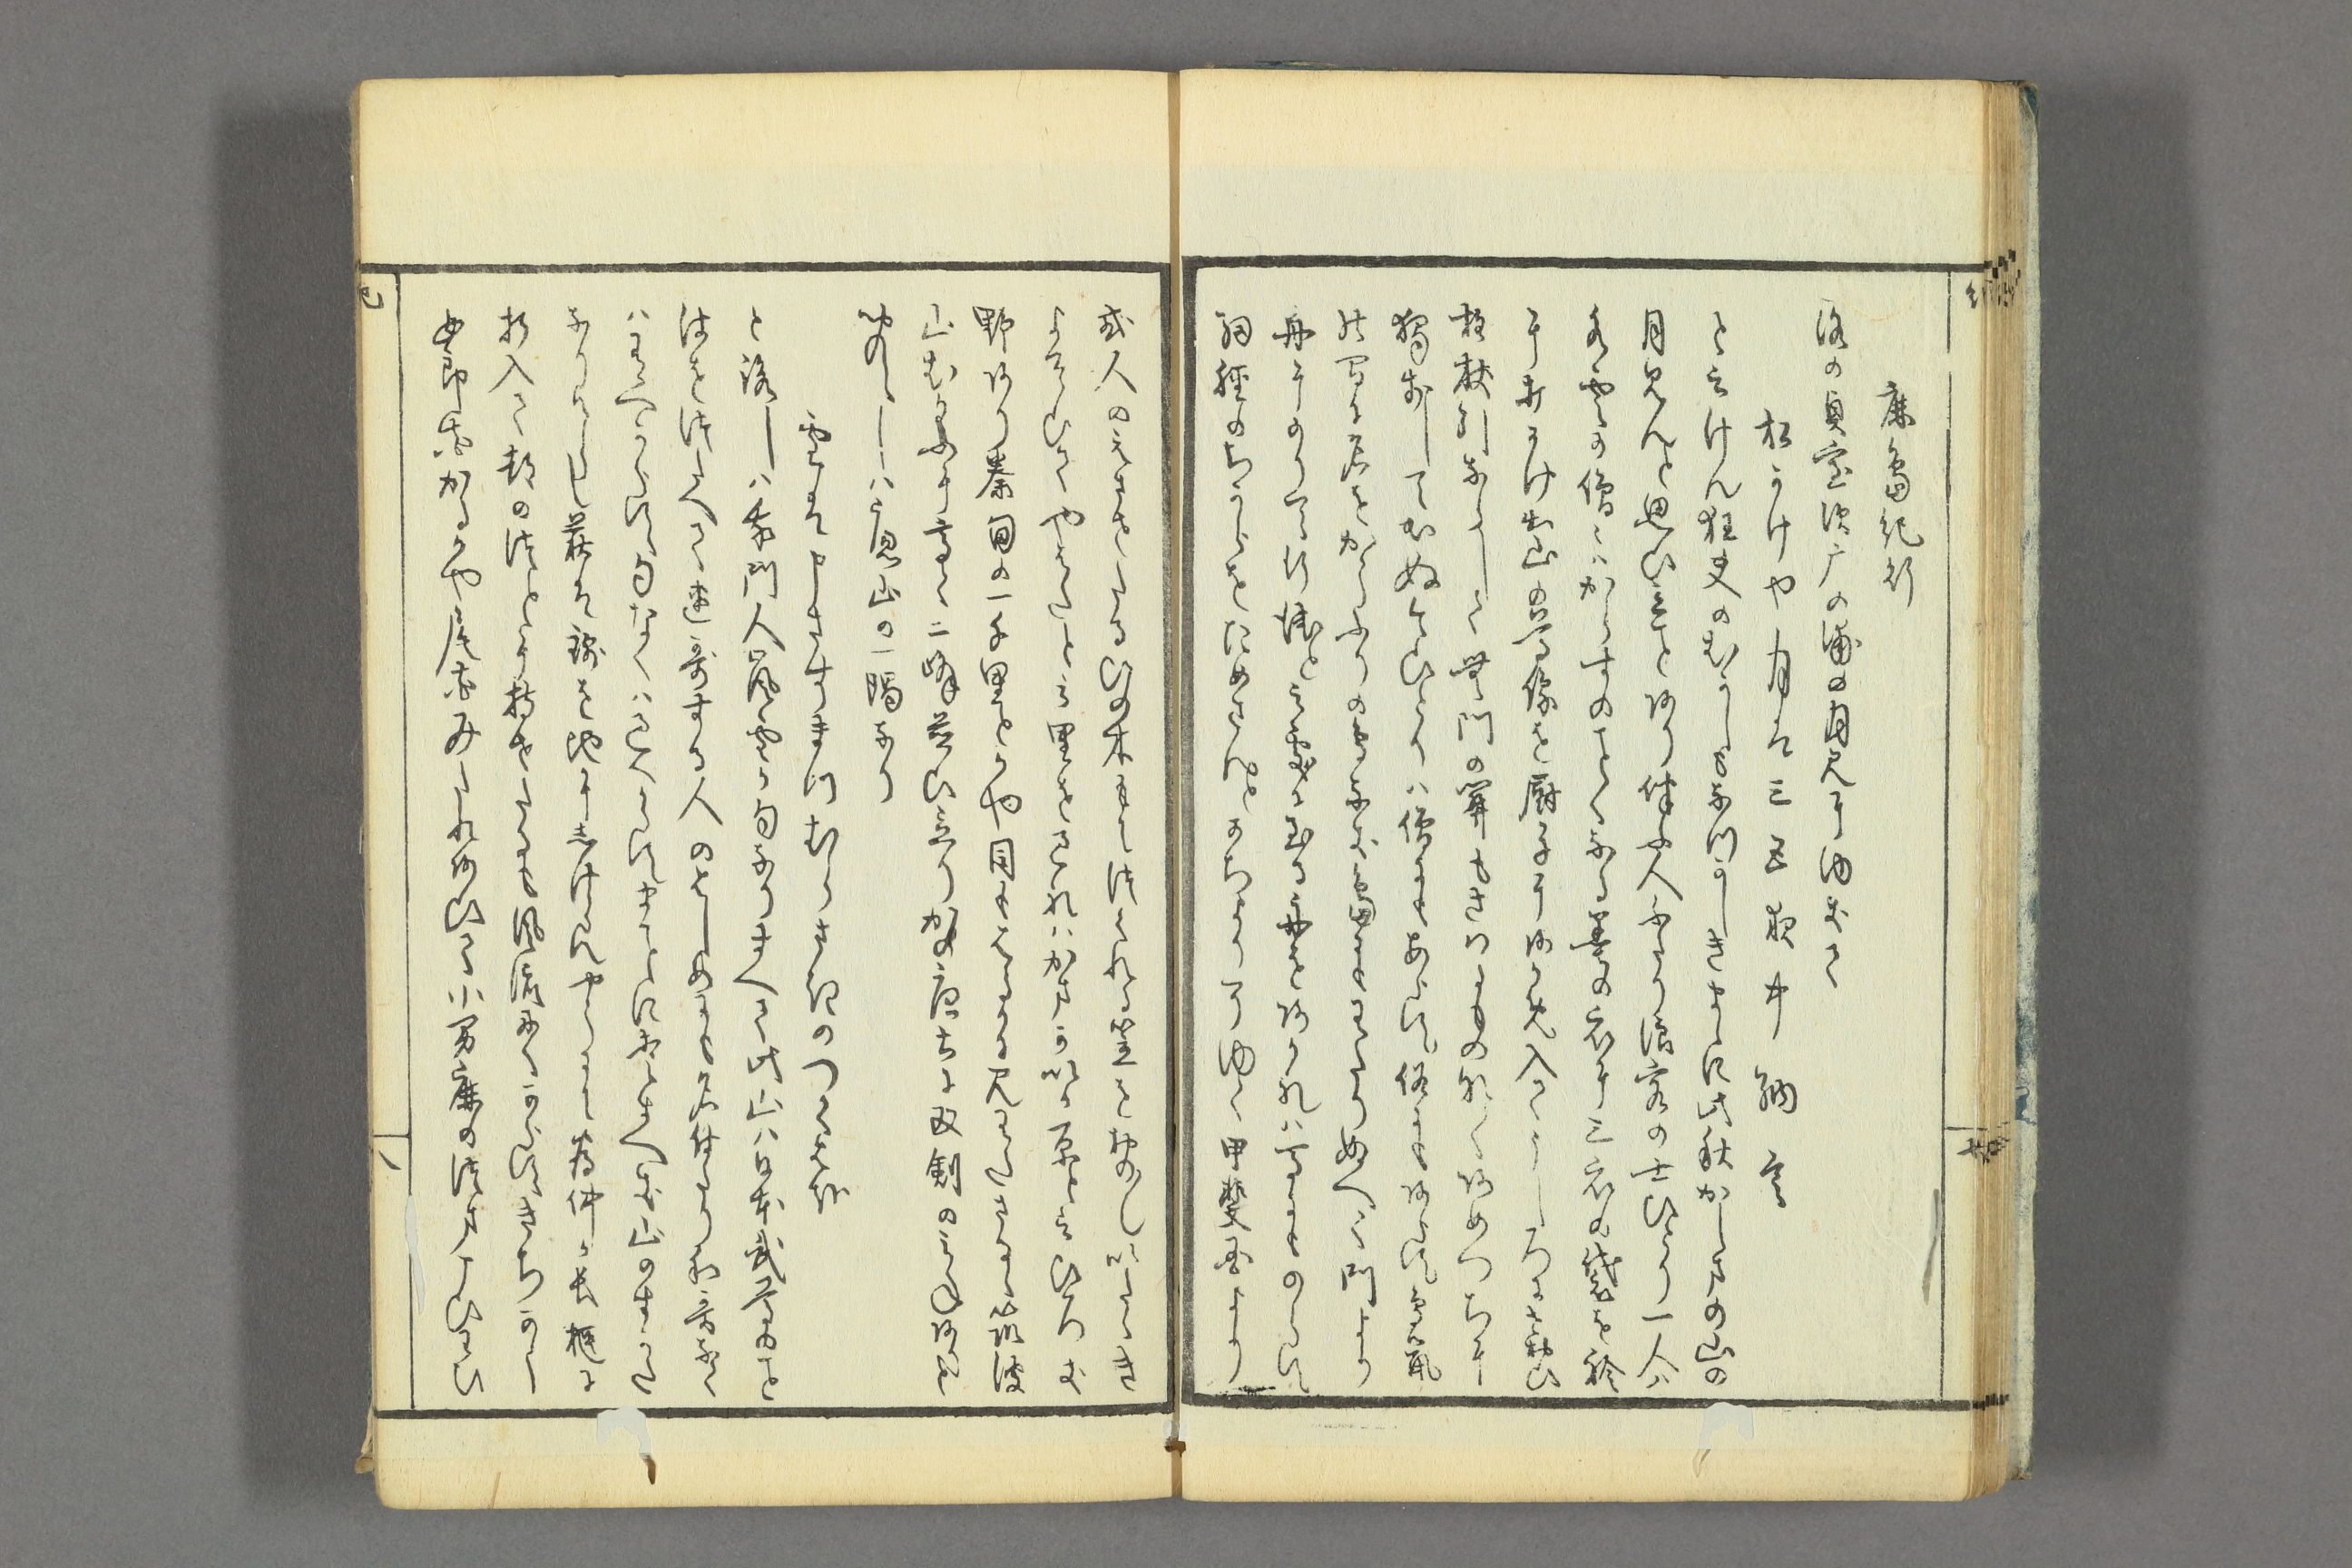 鹿島紀行
洛の貞室須广の浦の月見にゆきて
松かけや月は三五夜中納言
と云けん狂夫のむかしもなつかしきまゝに此秋かしまの山の
月見んと思ひ立ことあり伴ふ人ふたり浪客の士ひとり一人ハ
水雲の僧〻ハからすのことくなる墨の衣に三衣の袋を衿
に打かけ出山の尊像を厨子にあかめ入てうしろにせ負ひ
柱杖引ならして無門の関もさはるものなくあめつちに
独歩していてぬ今ひとりハ僧にもあらす俗にもあらす鳥鼠
の間に名をかうふりの鳥なき島にもわたりぬへく門より
舟にのりて行徳と云処に至る舟をあかれハ馬にものらす
細脛のちからをためさんとかちよりそゆく甲斐国より
或人のえさせたるひの木もて作れる笠を各〻いたゝき
よそひてやはたと云里を過れハかまかいの原と云ひろき
野あり秦甸の一千里とかや目もはるかに見わたさるゝ筑波
山むかふに高く二峰並ひ立りかの唐土に双剣のミねありと
聞えしハ廬山の一隅なり
雪は申さすまつむらさきのつくはかな
と詠しハ我門人嵐雪か句なりすへて此山ハ日本武尊の
言葉をつたへて連哥する人のはしめにも名付たり和哥なく
ハあるへからす句なくハ過へからすまことに愛すへき山のすかた
なりけらし萩は錦を地にしけらんやうにて為仲か長櫃に
折入て都のつとに持せたるも風流にくからすきちかう
女郎花かるかや尾花みたれあひて小男鹿のつまこひわひ